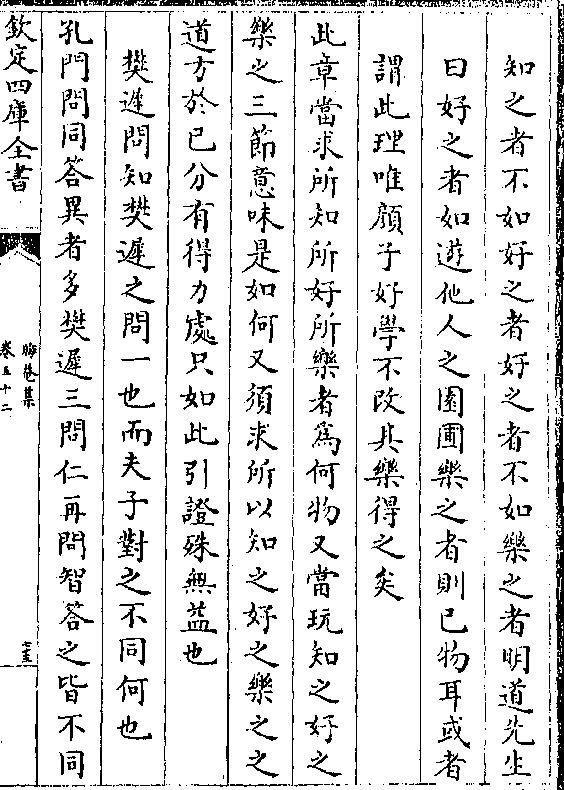 知之者不如好之者好之者不如樂之者明道先生
曰好之者如遊他人之園圃樂之者則己物耳或者
謂此理唯顔子好學不改其樂得之矣
此章當求所知所好所樂者爲何物又當玩知之好之
樂之三節意味是如何又須求所以知之好之樂之之
道方於已分有得力處只如此引證殊無益也
樊遲問知樊遲之問一也而夫子對之不同何也
孔門問同答異者多樊遲三問仁再問智答之皆不同
欽定四庫全書
晦菴集
卷五十二